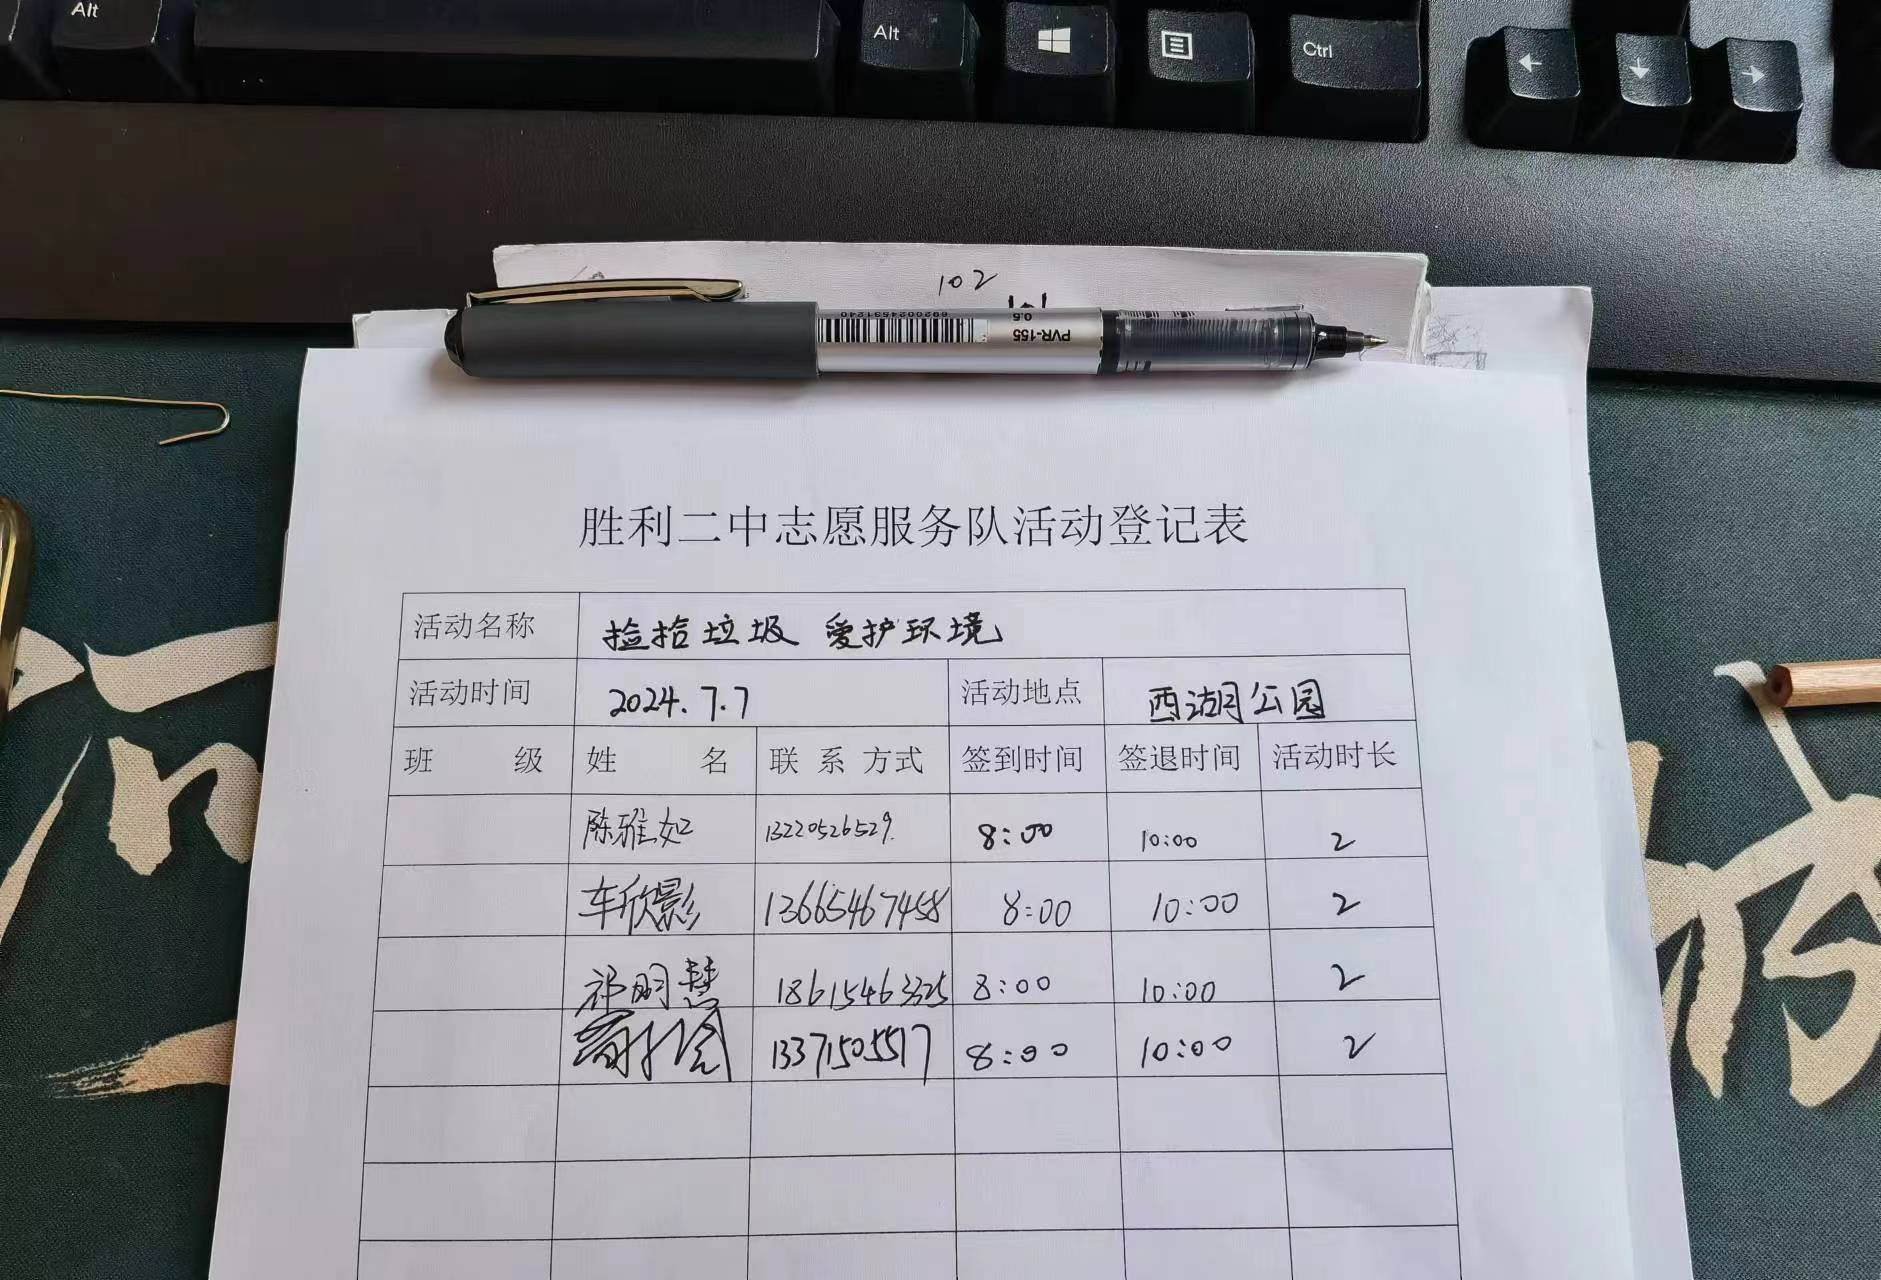 Alt
Alt
Ctrl
102
6920024531240
0.5
PVR-155
胜利二中志愿服务队活动登记表
活动名称 捡拾垃圾 爱护环境
活动时间 2024.7.7 活动地点 西湖公园
班 级 姓 名 联系方式 签到时间 签退时间 活动时长
陈雅如 13220526529. 8:00 10:00 2
车欣影 13665467458 8:00 10:00 2
祁明慧 18615463325 8:00 10:00 2
13371505517 8:00 10:00 2